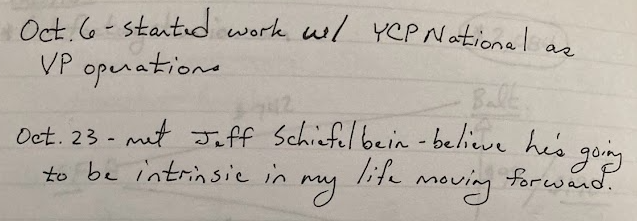 Oct. 6 - started work w/ YCP National as
VP operations
$942
Balt.
Oct. 23 - met Jeff Schiefelbein - believe he's going
to be intrinsic in my life moving forward.